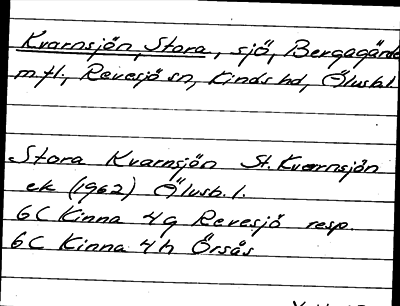 Kvarnsjön, Stora, sjö, Bergagärde
m fl., Revesjö sn, Kinds hd, Älvsb.l
Stora Kvarnsjön St. Kvarnsjön
ek (1962) Älvsb. l.
6C Kinna 4g Revesjö resp.
6C Kinna 4h Örsås